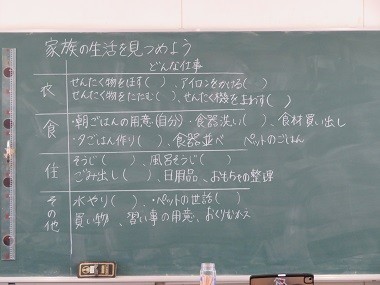 家族の生活を見つめよう
どんな仕事
衣
せんたく物をほす( )、アイロンをかける( )
せんたく物をたたむ( )、せんたく機をまわす( )
食
・朝ごはんの用意(自分)・食器洗い( )、食材買い出し
・夕ごはん作り( )、食器並べ ペットのごはん
住
そうじ( )、風呂そうじ( )
ごみ出し( )、日用品、おもちゃの整理
その他
水やり( )、・ペットの世話( )
買い物、習い事の用意、おくりむかえ